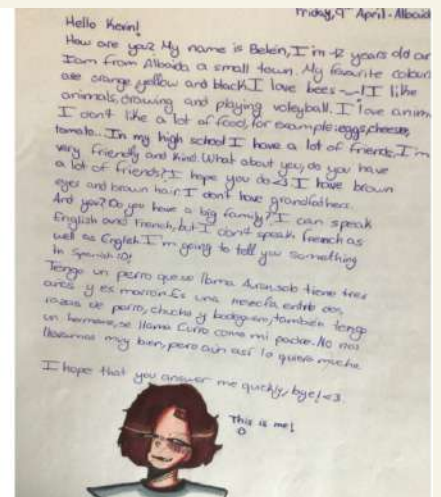 Friday, 9th April - Albaida
Hello Kevin!
How are you? My name is Belén, I'm 12 years old and
I am from Albaida a small town. My favourite colours
are orange, yellow and black I love bees I like
animals, drawing and playing voleyball. I love anim
I don't like a lot of food, for example: eggs, cheese,
tomato... In my high school I have a lot of friends, I'm
very friendly and kind. What about you, do you have
a lot of friends? I hope you do <3 I have brown
eyes and brown hair. I don't have grandfathers.
And you? Do you have a big family? I can speak
English and French, but I don't speak french as
well as English. I'm going to tell you something
in Spanish :D!
Tengo un perro que se llama solo tiene tres
años y es marrón. Es una mezcla entre dos
razas de perro, chucho y bodeguero, también tengo
un hermano, se llama Curro como mi padre. No nos
llevamos muy bien, pero aún así lo quiero mucho.
I hope that you answer me quickly, bye! <3.
This is me!